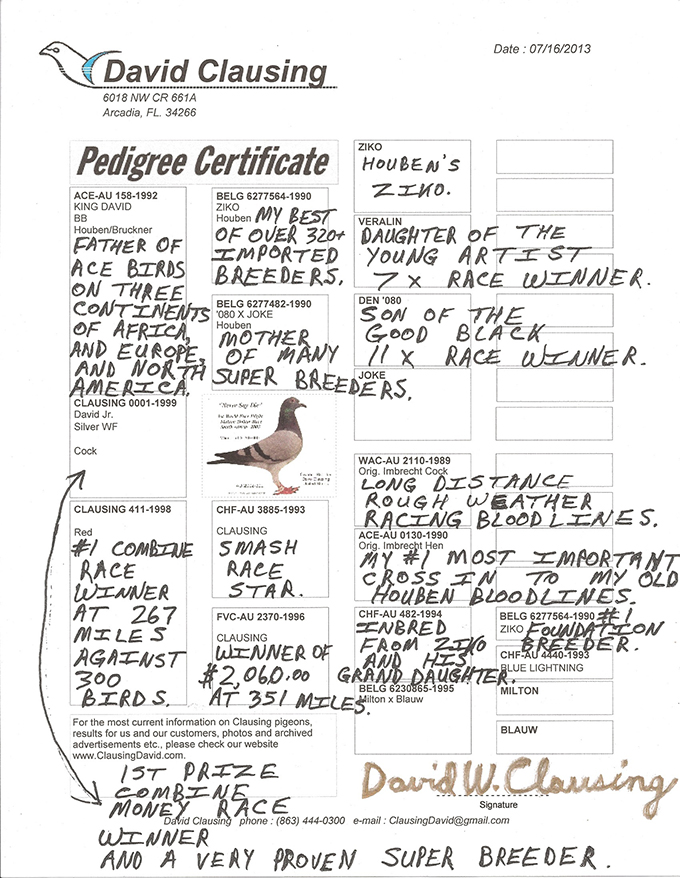 Date : 07/16/2013
David Clausing
6018 NW CR 661A
Arcadia, FL. 34266
Pedigree Certificate
ACE-AU 158-1992
KING DAVID
BB
Houben/Bruckner
FATHER OF
ACE BIRDS
ON THREE
CONTINENTS
OF AFRICA,
AND EUROPE,
AND NORTH
AMERICA.
CLAUSING 0001-1999
David Jr.
Silver WF
Cock
CLAUSING 411-1998
Red
#1 COMBINE
RACE
WINNER
AT 267
MILES
AGAINST
300
BIRDS.
BELG 6277564-1990
ZIKO
Houben MY BEST
OF OVER 320+
IMPORTED
BREEDERS.
BELG 6277482-1990
'080 X JOKE
Houben
MOTHER
OF MANY
SUPER BREEDERS.
"Never Say Die"
CHF-AU 3885-1993
CLAUSING
SMASH
RACE
STAR.
FVC-AU 2370-1996
CLAUSING
WINNER OF
$2,060.00
AT 351 MILES.
ZIKO
HOUBEN'S
ZIKO.
VERALIN
DAUGHTER OF THE
YOUNG ARTIST
7 X RACE WINNER.
DEN '080
SON OF THE
GOOD BLACK
11 X RACE WINNER.
JOKE
WAC-AU 2110-1989
Orig. Imbrecht Cock
LONG DISTANCE
ROUGH WEATHER
RACING BLOODLINES.
ACE-AU 0130-1990
Orig. Imbrecht Hen
MY #1 MOST IMPORTANT
CROSS IN TO MY OLD
HOUBEN BLOODLINES.
CHF-AU 482-1994
INBRED
FROM ZIKO
AND HIS
GRAND DAUGHTER.
BELG 6230865-1995
Milton x Blauw
BELG 6277564-1990 #1
ZIKO FOUNDATION
BREEDER.
CHF-AU 4440-1993
BLUE LIGHTNING
MILTON
BLAUW
For the most current information on Clausing pigeons,
results for us and our customers, photos and archived
advertisements etc., please check our website
www.ClausingDavid.com
David W. Clausing
Signature
1ST PRIZE
COMBINE
MONEY RACE
David Clausing phone : (863) 444-0300 e-mail : ClausingDavid@gmail.com
WINNER
AND A VERY PROVEN SUPER BREEDER.